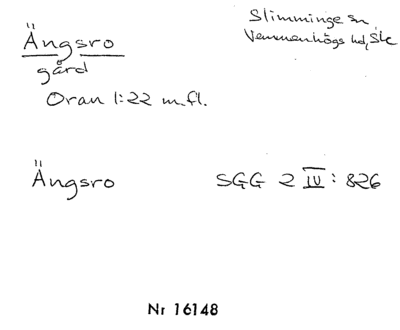 Ängsro
gård
Oran 1:22 m.fl.
Slimminge sn
Vemmenhögs hd, Skå
Ängsro
SGG 2 IV: 826
Nr 16148